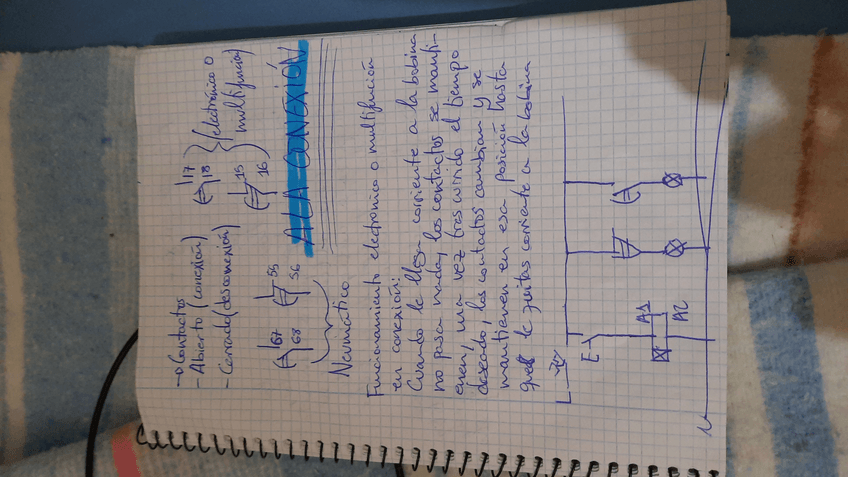 → Contactos
- Abierto (conexión)
- Cerrado (desconexión)
17
18
15
16
(electrónico o
multifunción)
67
68
55
56
Neumático
A LA CONEXIÓN
Funcionamiento electronico o multifunción
en conexión:
Cuando le llega corriente a la bobina
no pasa nada, los contactos se manti-
enen, una vez trascurrido el tiempo
deseado, los contactos cambian y se
mantienen en esa posición hasta
que le quitas corriente a la bobina
L
E
A1
A2
N